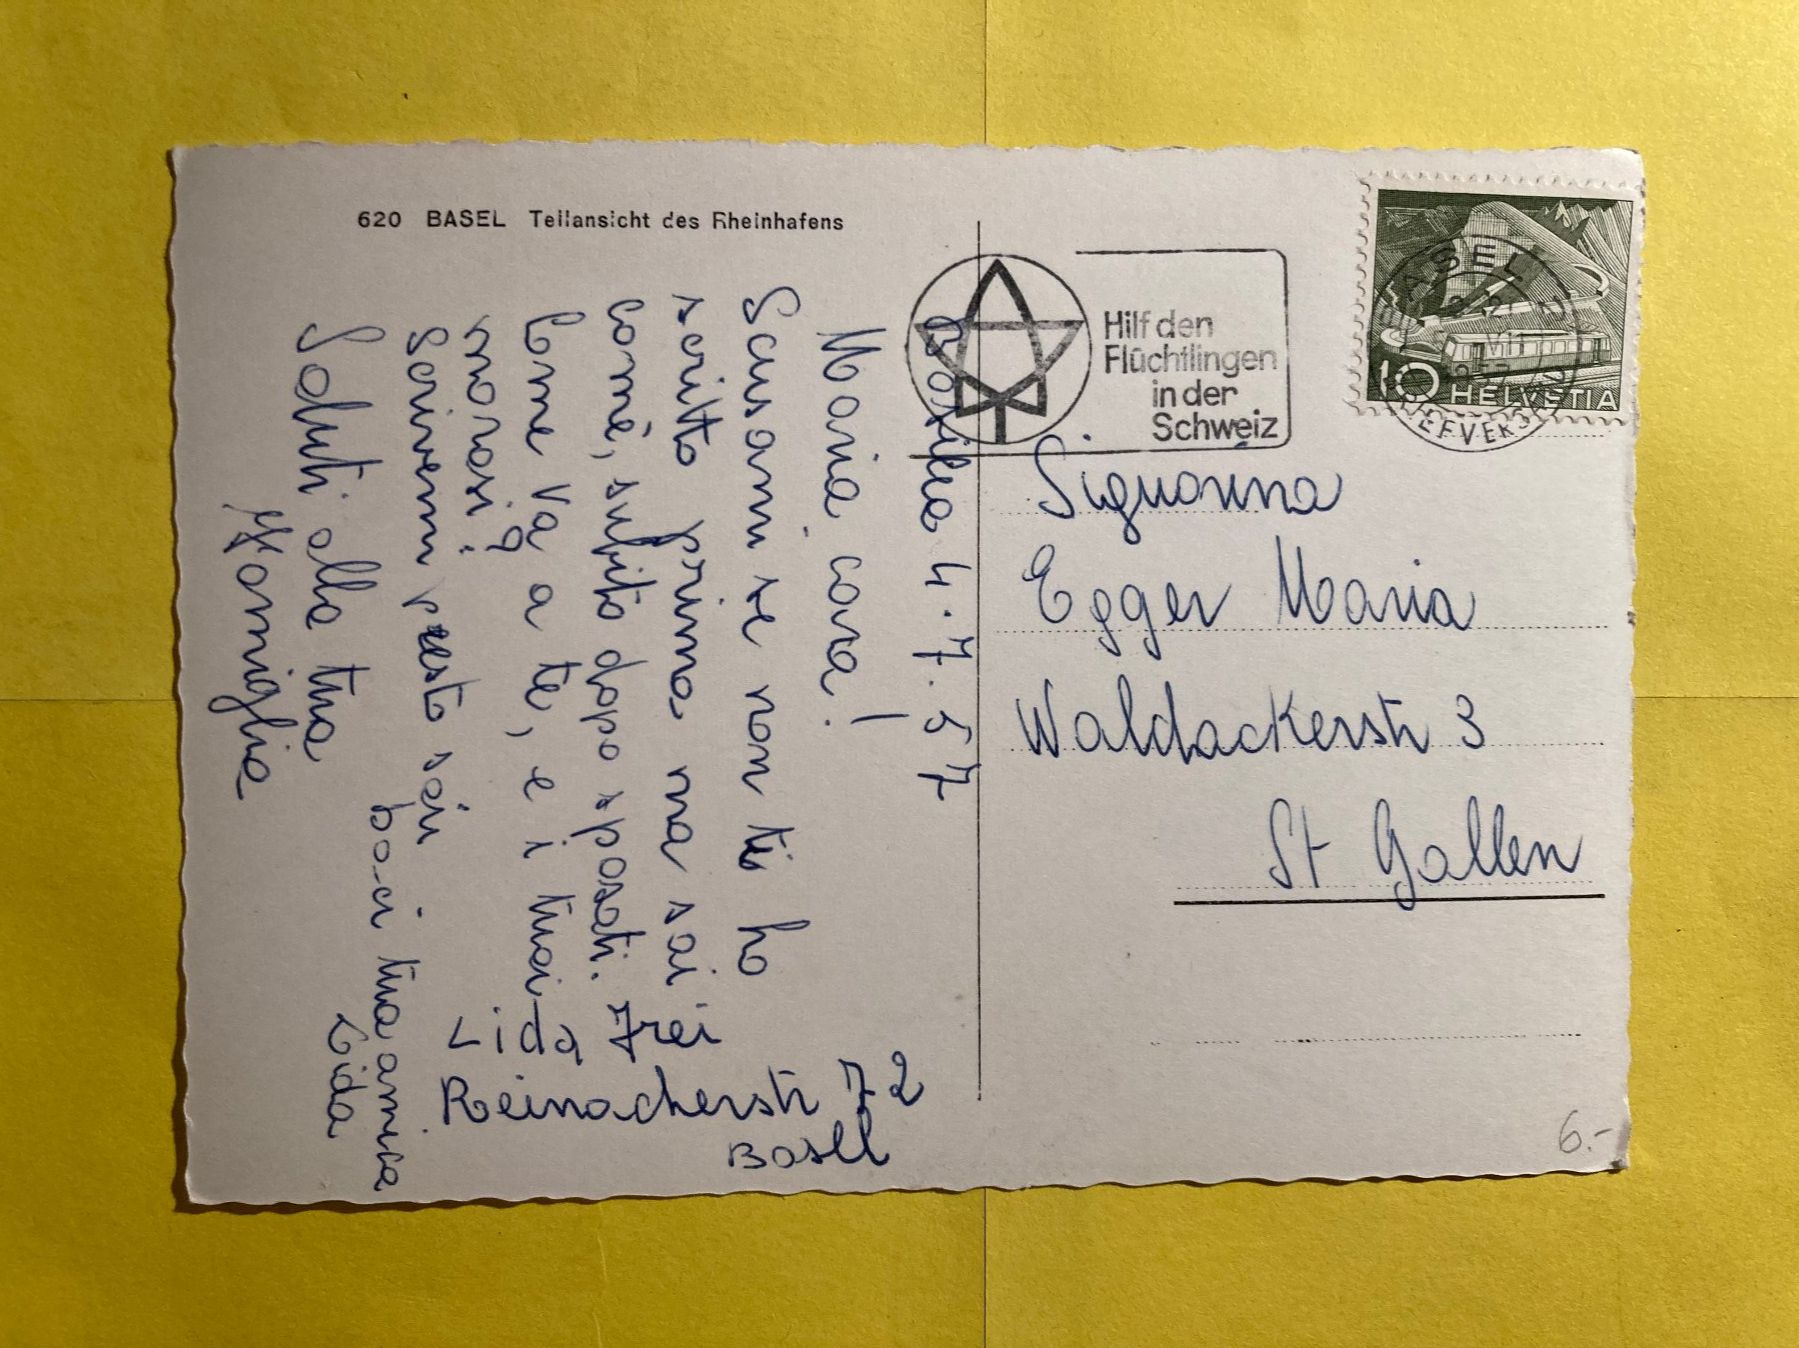 620 BASEL Teilansicht des Rheinhafens
Basilea 4.7.57
Maria cara!
Scusami se non ti ho
scritto prima ma sai
com'è, subito dopo sposati.
Come va a te, e i tuoi
morosi?
Scrivemi presto sai
baci tua amica
Lida
Saluti alla tua
Famiglia
Lida Frei
Reinacherstr 72
Basel
Hilf den
Flüchtlingen
in der
Schweiz
BASEL 2
21
VII
57
BRIEFVERSAND
10 HELVETIA
Signorina
Egger Maria
Waldackerstr 3
St Gallen
6.-